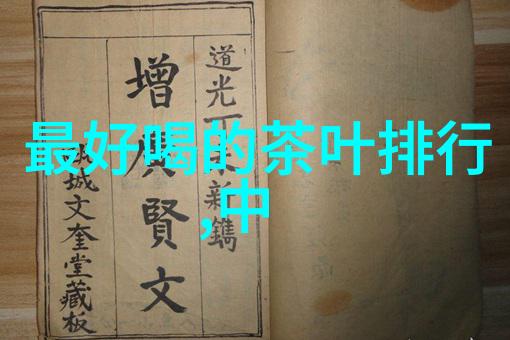 最好喝的茶叶排行
,中
道光丁未新鐫
增廣賢文
城文奎堂藏板